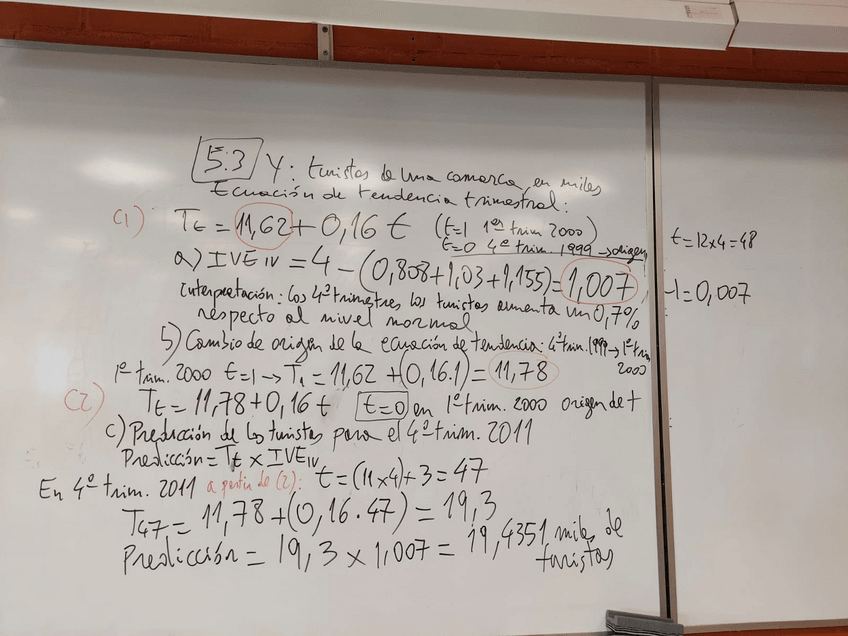 5.3 Y: turistas de una comarca, en miles
Ecuación de tendencia trimestral:
C1) Tt = 11,62 + 0,16 t (t=1 1er trim 2000)
t=0 4º trim. 1999 → origen
a) IVE IV = 4 - (0,808+1,03+1,155) = 1,007
Interpretación: los 4º trimestres los turistas aumenta un 0,7%
respecto al nivel normal
b) Cambio de origen de la ecuación de tendencia: 4º trim. 1999 → 1º trim
2000
1º trim. 2000 t=1 → T1 = 11,62 + (0,16.1) = 11,78
C2) Tt = 11,78 + 0,16 t t=0 en 1º trim. 2000 origen de t
c) Predicción de los turistas para el 4º trim. 2011
Predicción = Tt x IVE IV
En 4º trim. 2011 a partir de (2): t = (11x4)+3 = 47
T47 = 11,78 + (0,16.47) = 19,3
Predicción = 19,3 x 1,007 = 19,4351 miles de
turistas
t = 12x4 = 48
-1 = 0,007